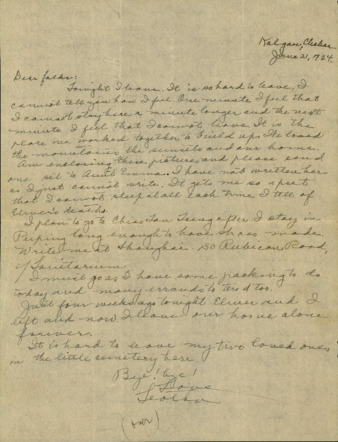 Kalgan, Chahar.
June 21, 1924.
Dear folks:
Tonight I leave. It is so hard to leave, I
cannot tell you how I feel. One minute I feel that
I cannot stay here a minute longer and the next
minute I feel that I cannot leave. It is the
place we worked together to build up. He loved
the mountains, the sunsets and our home.
Am enclosing three pictures and please send
one set to Aunt Emma. I have not written her
as I just cannot write. It gets me so upset
that I cannot sleep at all each time I tell of
deaths.
I plan to go to Chiao Tou Tseng after I stay in
Peiping long enough to have dresses made.
Write me at Shanghai. 150 Rubicon Road,
c/o Sanitarium.
I must go as I have some packing to do
today and many errands to tend too.
Just four weeks ago tonight Elmer and I
left and now I leave our home alone
forever.
It is hard to leave my two loved ones
in the little cemetery here.
Bye! bye!
Love